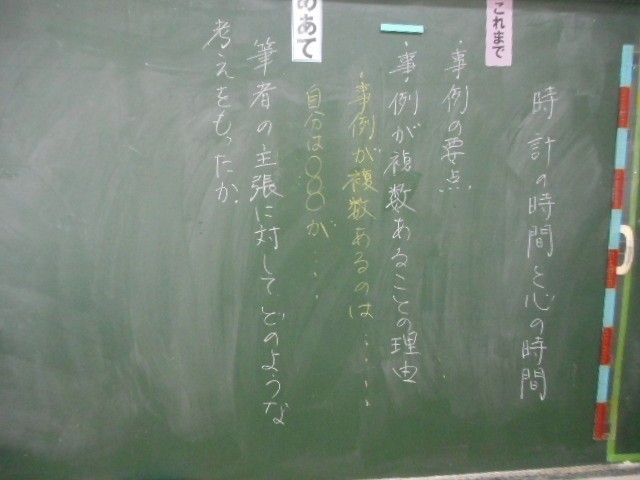 時計の時間と心の時間
これまで
・事例の要点
・事例が複数あることの理由
・事例が複数あるのは・・・・・
自分は〇〇〇が・・・・
めあて
筆者の主張に対してどのような
考えをもったか。